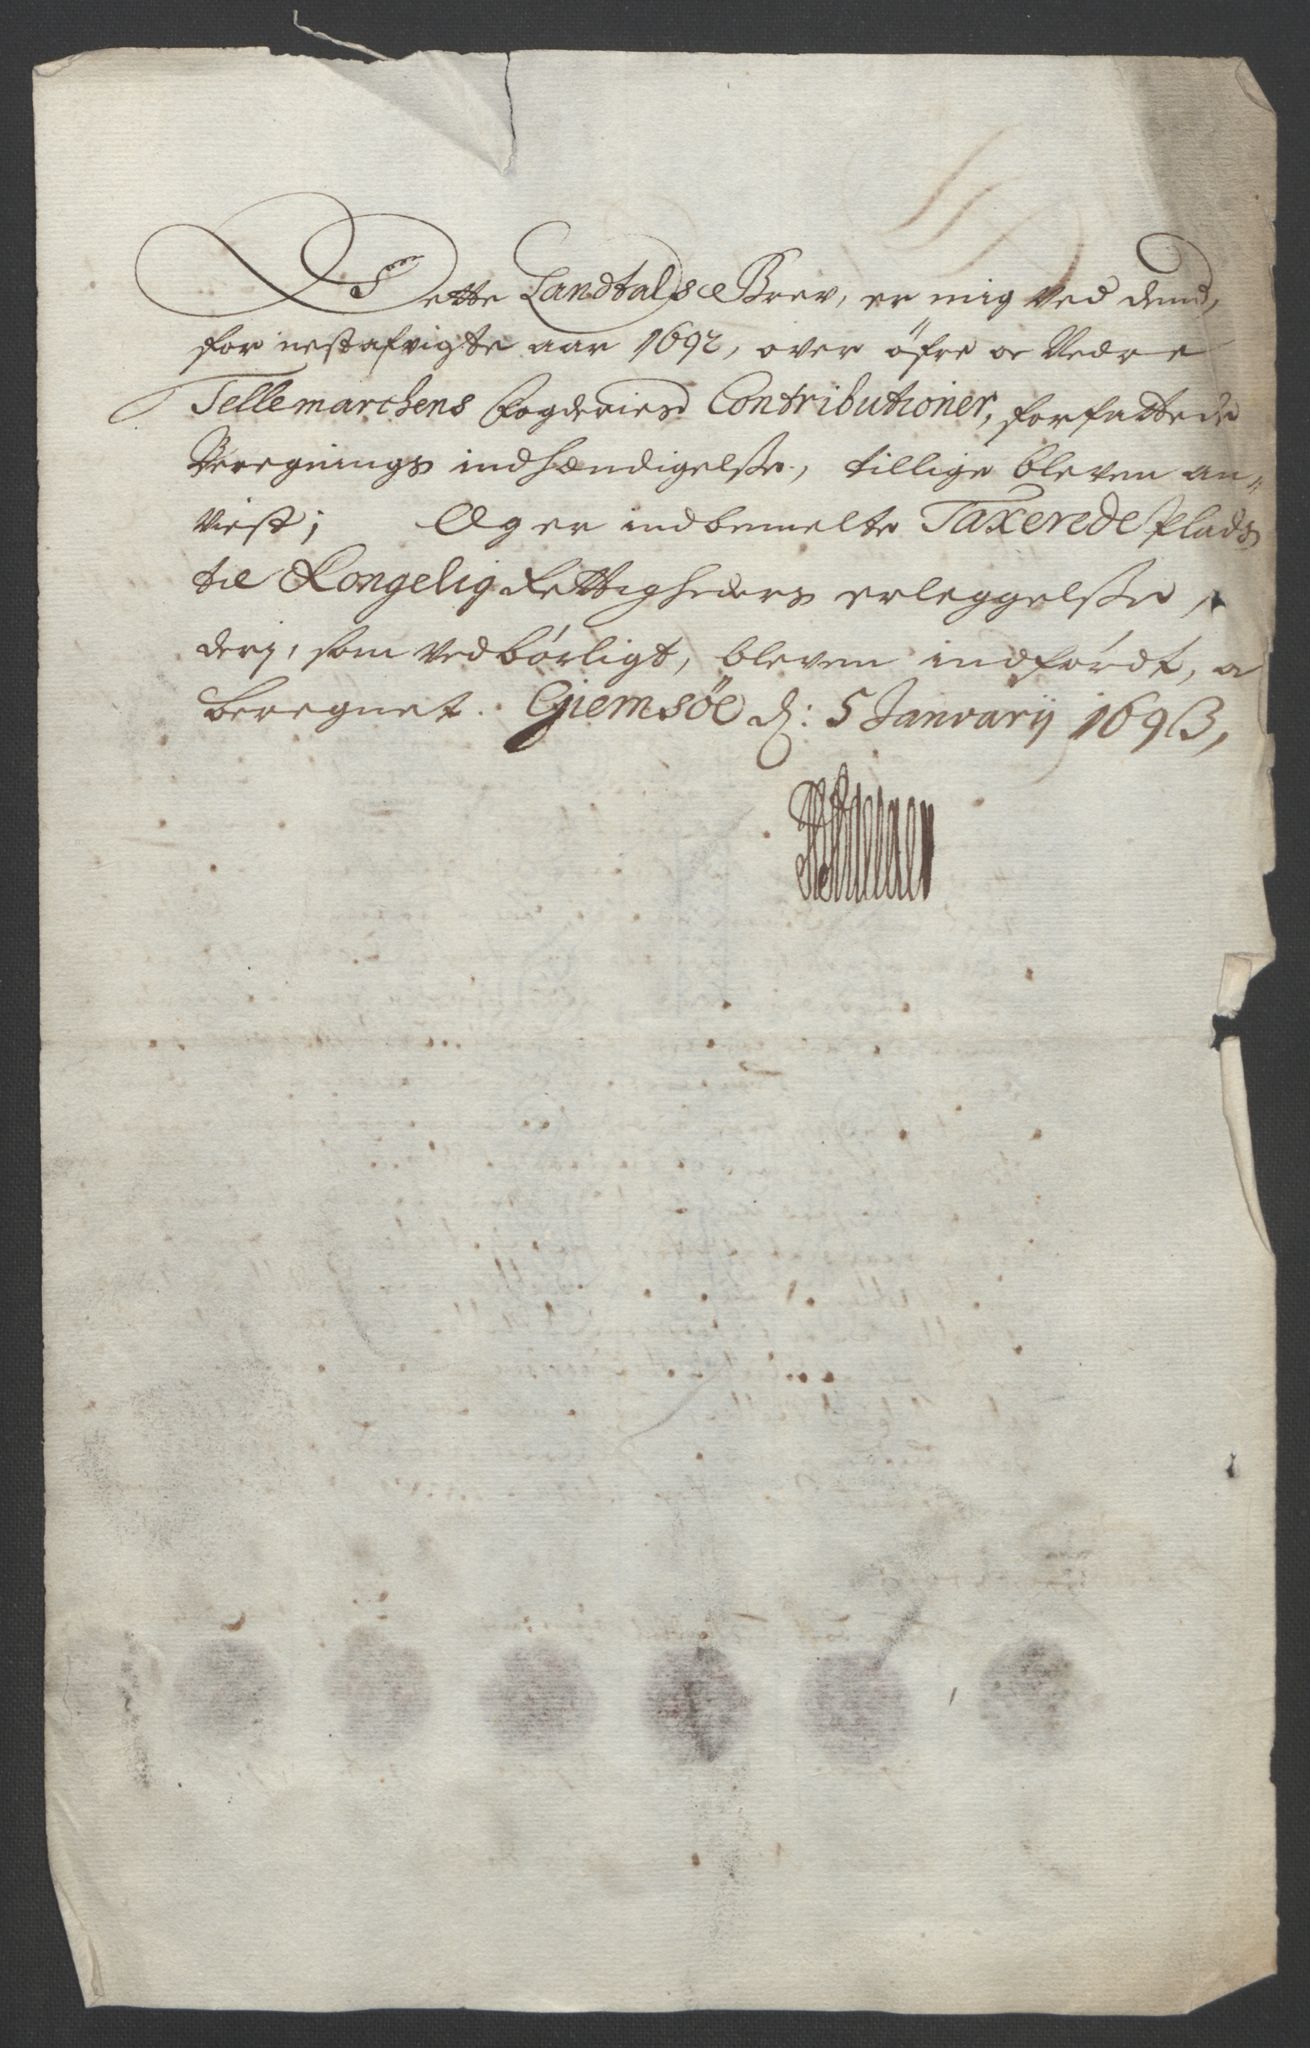 Dette Landtals Brev, er mig ved dend,
for nestafvigte aar 1692, over öfre oc Nedre
Tellemarchens Fogderies Contributioner, forfattede
Beregnings indhændigelse, tillige bleven an=
viist; Og er indbemelte Taxerede Plads
til Kongelig Rettigheders erleggelse,
deri, som vedbörligt, bleven indfördt, o
beregnet. Gjemsöe d: 5 Januarij 1693,